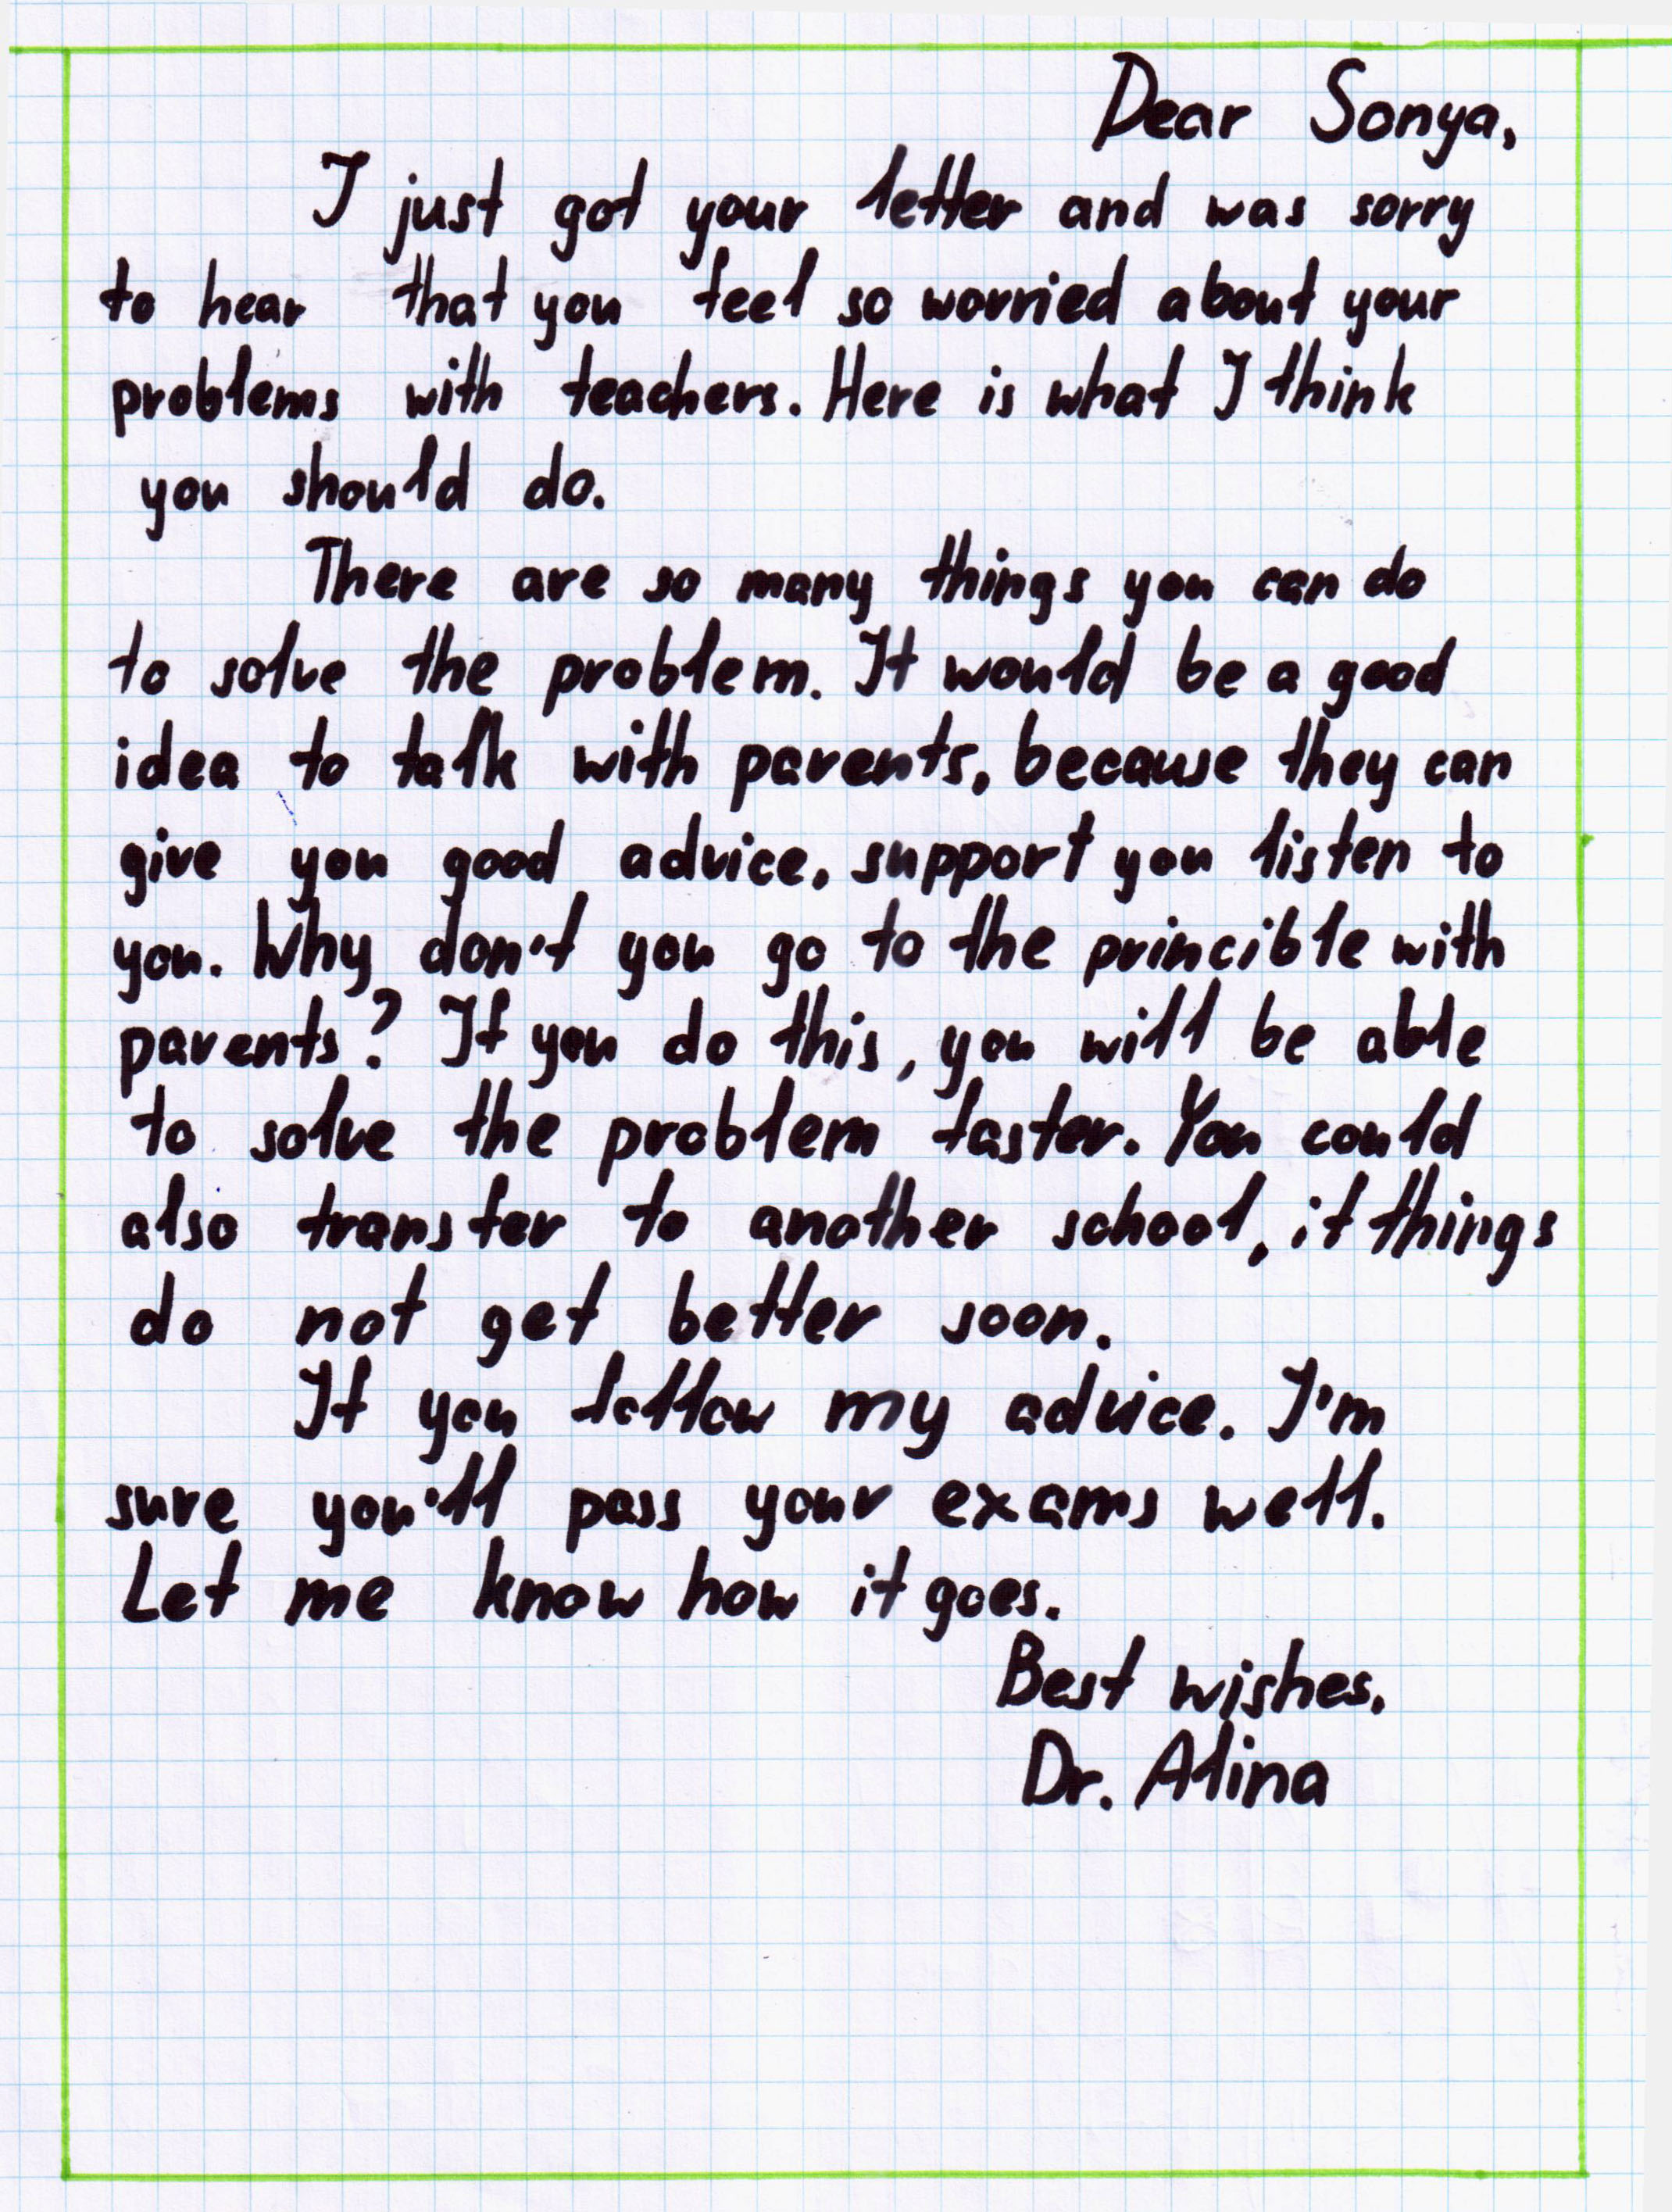 Dear Sonya,
I just got your letter and was sorry
to hear that you feel so worried about your
problems with teachers. Here is what I think
you should do.
There are so many things you can do
to solve the problem. It would be a good
idea to talk with parents, because they can
give you good advice, support you listen to
you. Why don't you go to the princible with
parents? If you do this, you will be able
to solve the problem faster. You could
also transfer to another school, if things
do not get better soon.
If you follow my advice. I'm
sure you'll pass your exams well.
Let me know how it goes.
Best wishes,
Dr. Alina